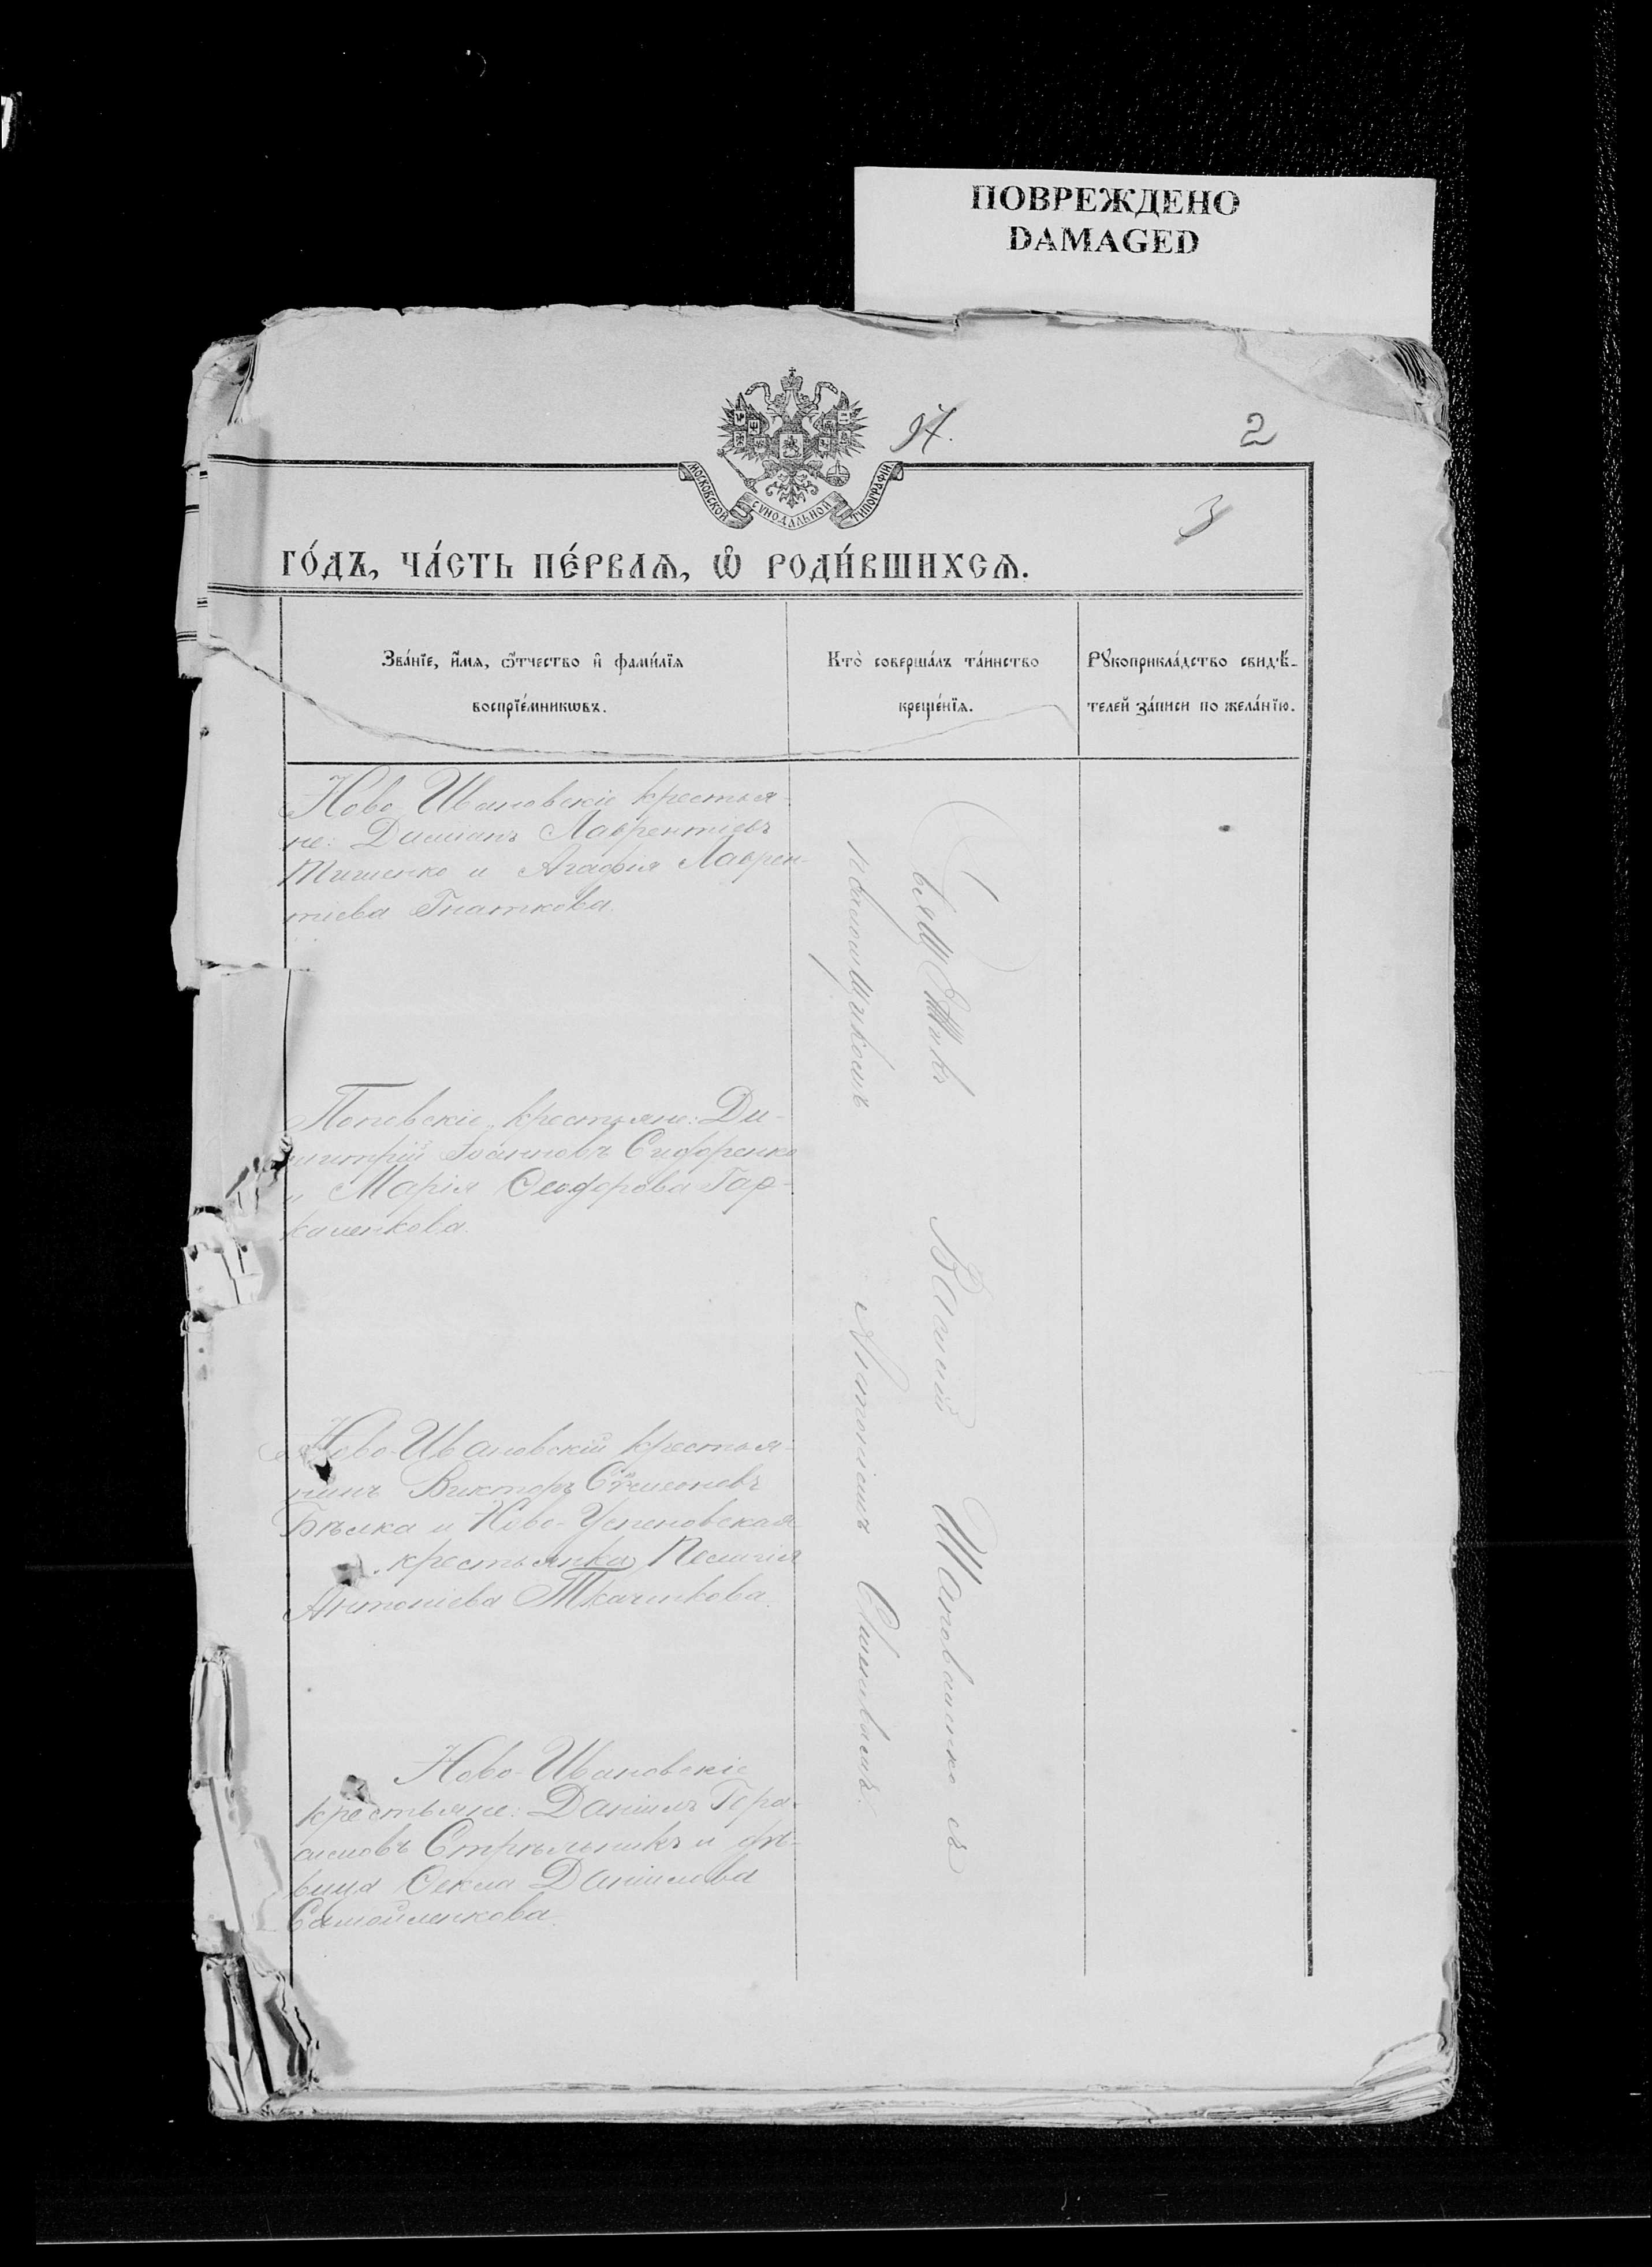 ПОВРЕЖДЕНО
DAMAGED
2
3
МОСКОВСКОЙ СѴНОДАЛЬНОЙ ТИПОГРАФІИ
ГО́ДЪ, ЧА́СТЬ ПЕ́РВАѦ, Ѡ҆ РОДИ́ВШИХСѦ.
Зва́нїе, и҆́мѧ, ѻ҆́тчество и҆ фами́лїѧ
воспрїе́мникѡвъ.
Кто̀ соверша́лъ та́инство
креще́нїѧ.
Рꙋкоприкла́дство свидѣ́-
телей за́писи по жела́нїю.
Ново Ивановскіе крестья-
не: Даміанъ Лаврентіевъ
Тишенко и Агафія Лаврен-
тіева Гнаткова.
Поповскіе крестьяне: Ди-
митрій Іоанновъ Сидоренко
и Марія Ѳеодорова Гар-
каленкова.
Ново-Ивановскій крестья-
нинъ Викторъ Сѵмеоновъ
Бѣлка и Ново-Успеновская
крестьянка Пелагія
Антоніева Ткаченкова.
Ново-Ивановскіе
крестьяне: Даніилъ Гера-
симовъ Стрѣльникъ и дѣ-
вица Ѳекла Даніилова
Самойленкова.
Священникъ Василій Шаповаленко съ
псаломщикомъ Антоніемъ